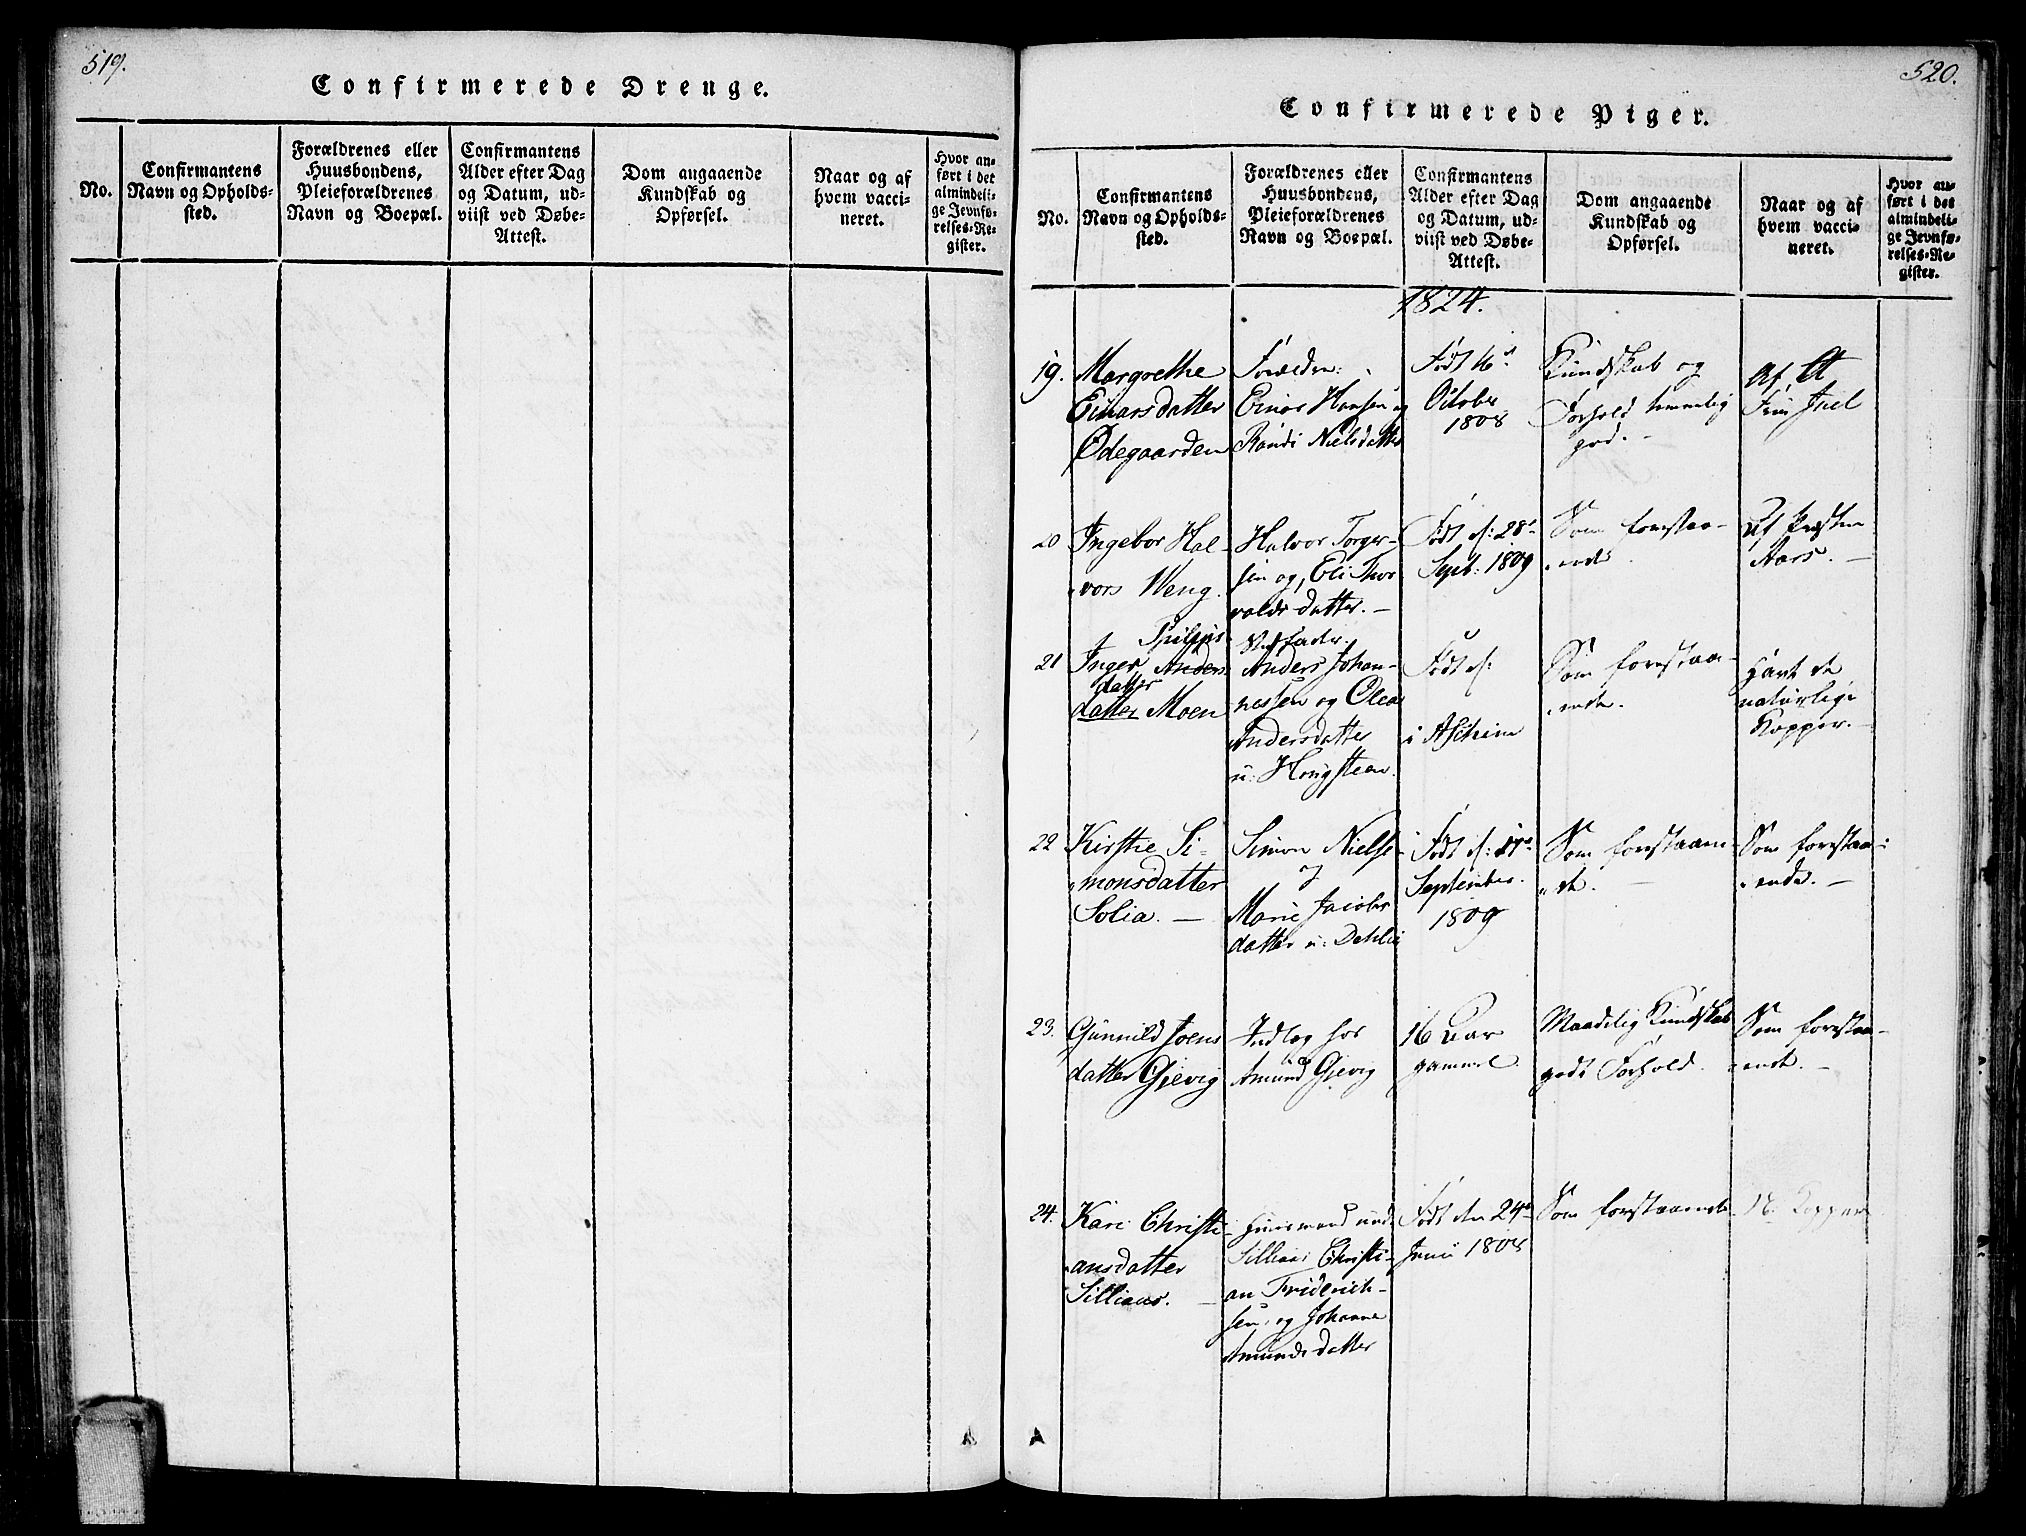 519.
Confirmerede Drenge.
No.
Confirmantens
Navn og Opholds-
sted.
Forældrenes eller
Huusbondens,
Pleieforældrenes
Navn og Boepæl.
Confirmantens
Alder efter Dag
og Datum, ud-
viist ved Døbe-
Attest.
Dom angaaende
Kundskab og
Opførsel.
Naar og af
hvem vacci-
neret.
Hvor an-
ført i det
almindeli-
ge Jevnfø-
relses-Re-
gister.
520.
Confirmerede Piger.
No.
Confirmantens
Navn og Opholds-
sted.
Forældrenes eller
Huusbondens,
Pleieforældrenes
Navn og Boepæl.
Confirmantens
Alder efter Dag
og Datum, ud-
viist ved Døbe-
Attest.
Dom angaaende
Kundskab og
Opførsel.
Naar og af
hvem vacci-
neret.
Hvor an-
ført i det
almindeli-
ge Jevnfø-
relses-Re-
gister.
1824.
19.
Margrethe
Einarsdatter
Ødegaarden
Forældre:
Einar Hansen og
Randi Nielsdatter
Født 16
October
1808
Kundskab og
Forhold temmelig
god.
Af
Juel
20
Ingebor Hal-
vors Weng.
Halvor Torger-
sen og Eli Thor
valds datter. -
Født d: 28
Sept: 1809
Som forestaa-
ende.
Af Præsten
Aars. -
21
Inger Anders
datter
datter Moen
Anders Johan-
nessen og Olea
Andersdatter
u: Hougsteen.
Født d:
i Aschim
Som forestaa-
ende.
Havt de
naturlige
Kopper. -
22
Kirstie Si-
monsdatter
Solia. -
Simon Niels
og
Marie Jacobs
datter u: Dehlie
Født d: 17
September.
1809
Som forestaaen
de. -
Som forestaa-
ende. -
23.
Gunnild Joens
datter Gjevig
Indlag hos
Amund Gjevig
16 Aar
gammel.
Maadelig Kundskab
godt Forhold.
Som forestaa-
ende. -
24.
Kari Christi
ansdatter
Sillians. -
Huusmand und.
Sillians Christi-
an Friderich-
sen, og Johanne
Amundsdatter
Født den 24
Junii 1808
Som forestaaende
Kopper